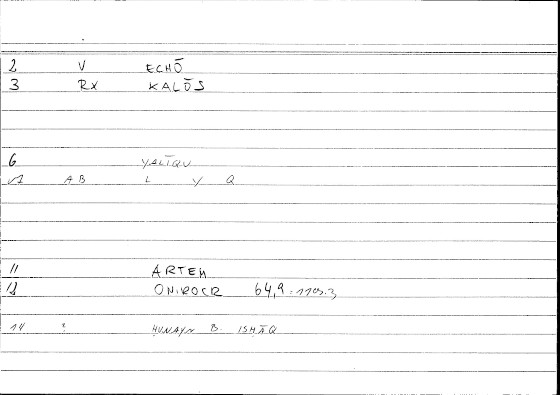 2 V ECHŌ
3 RX KALŌS
6 YALĪQU
AB L Y Q
11 ARTEM
12 ONIROCR 64,9
14 ḤUNAYN B. ISḤĀQ